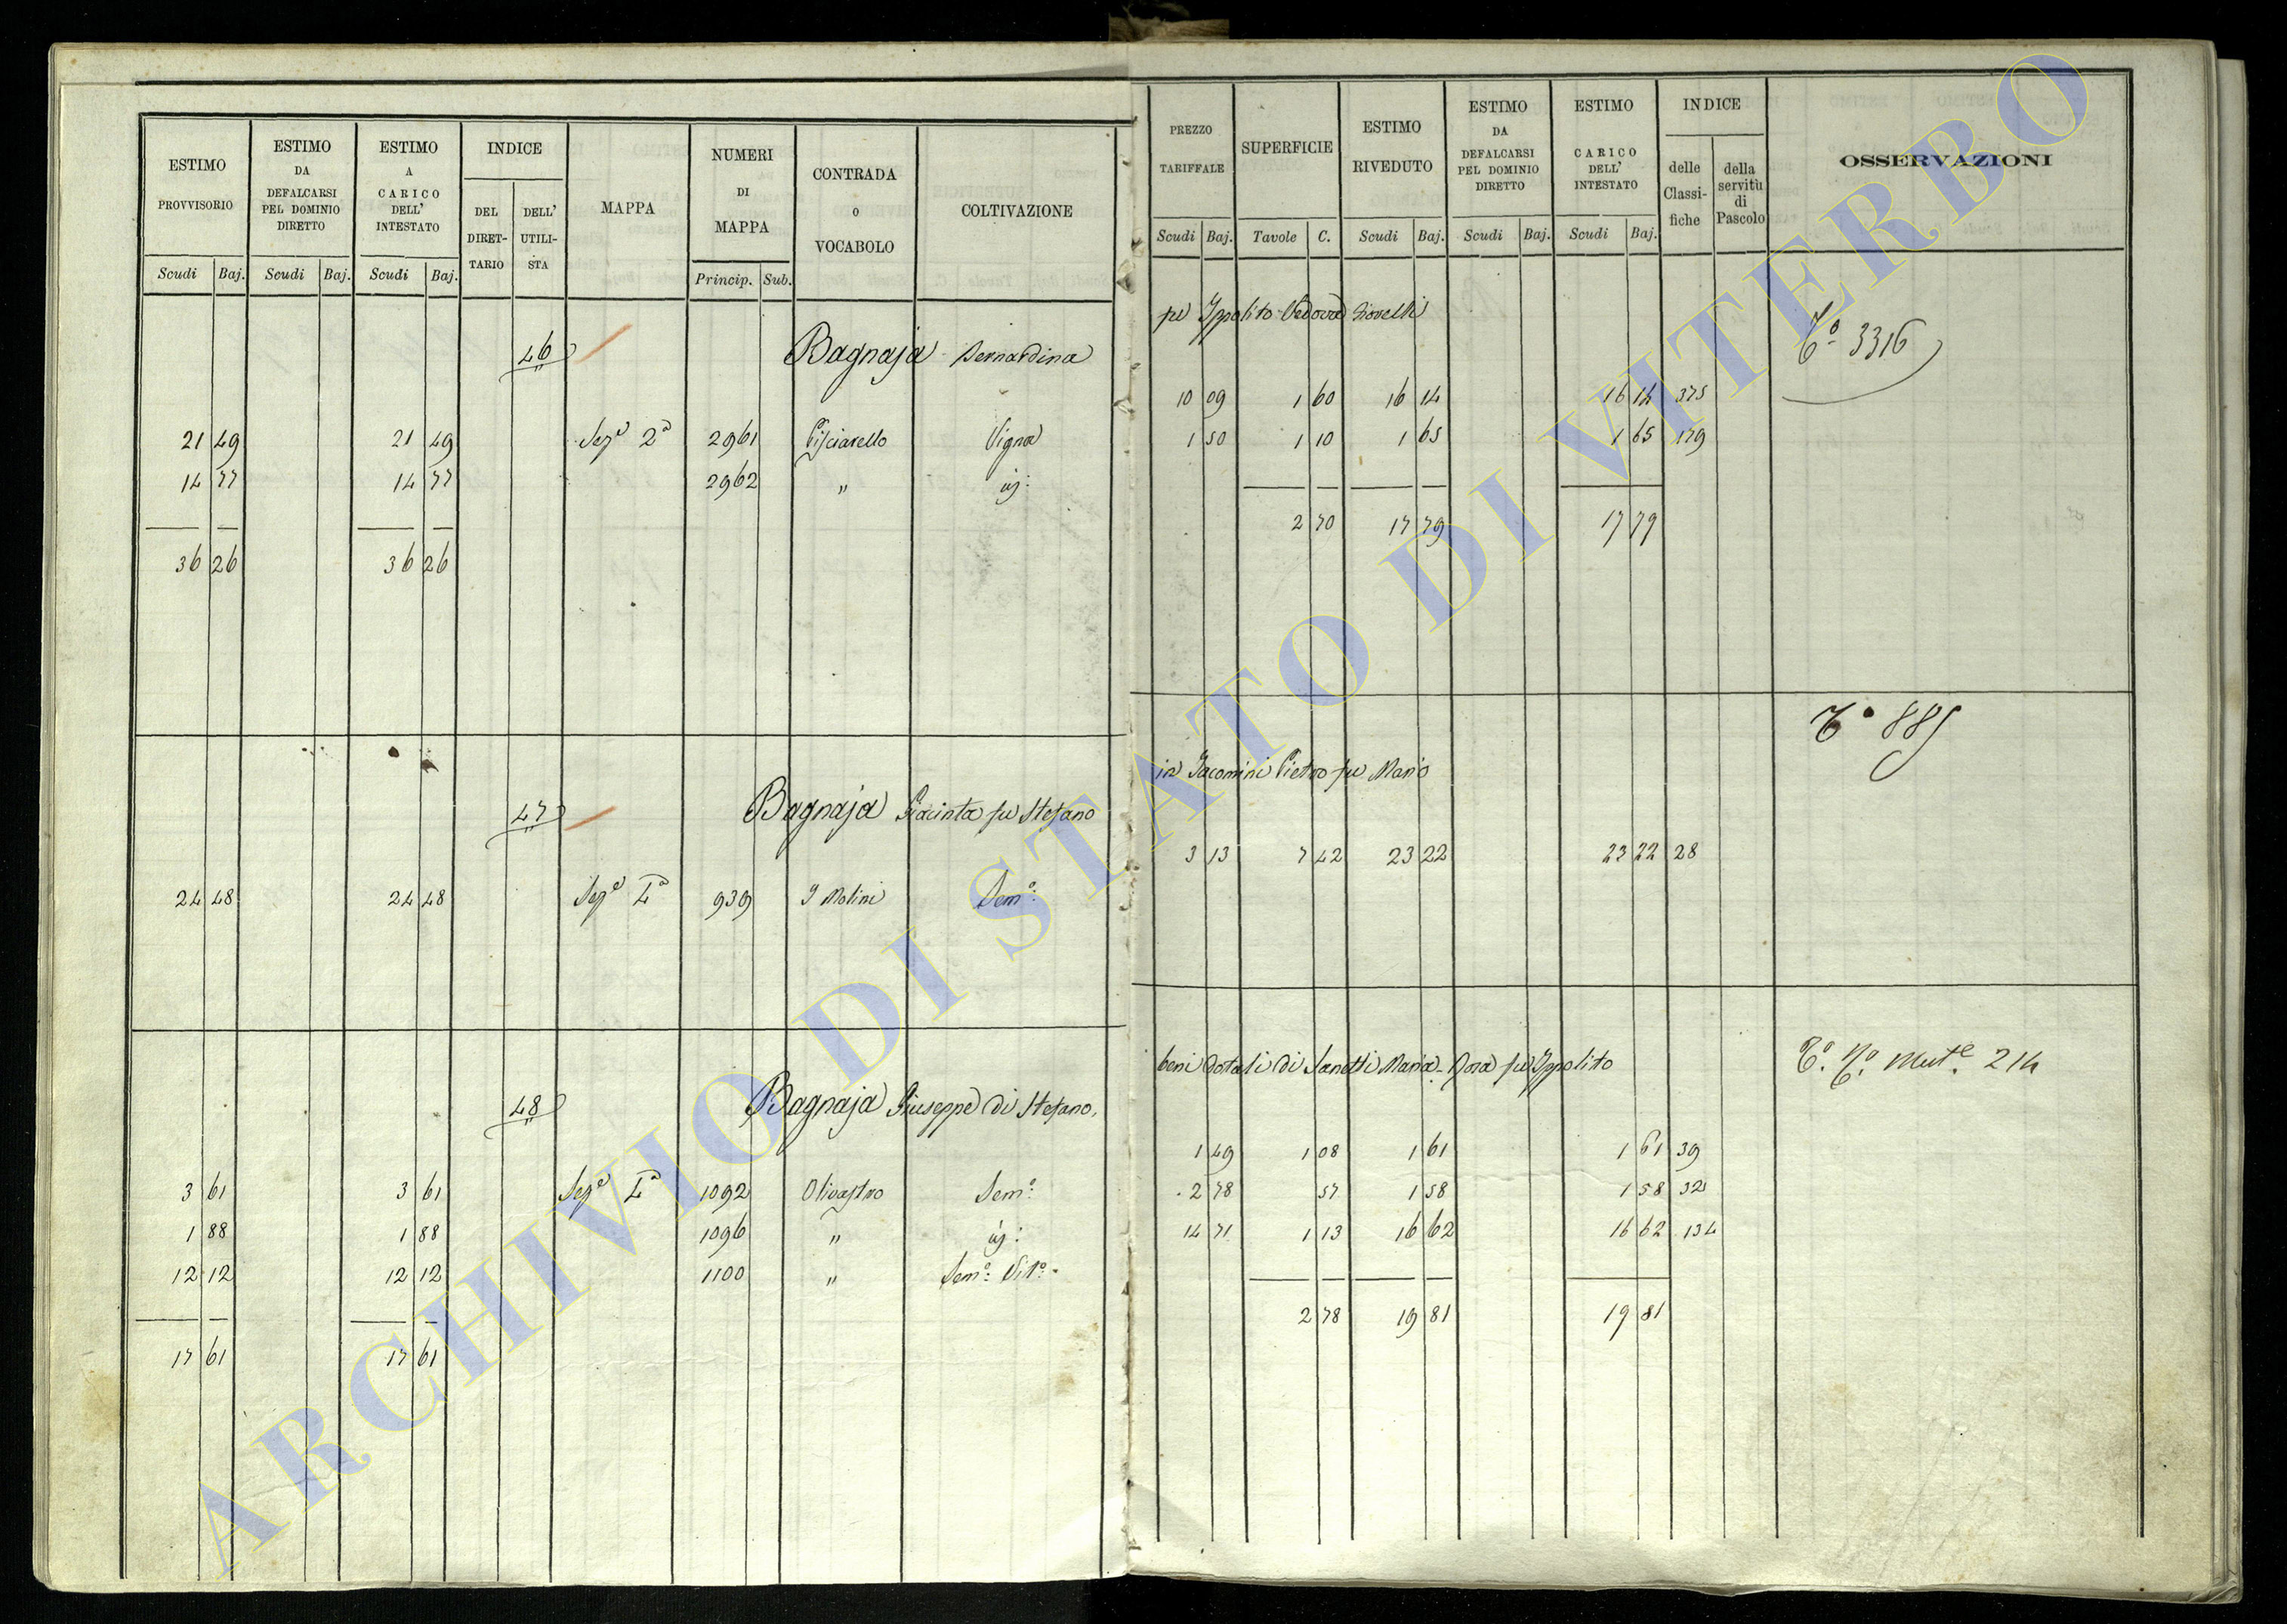 ESTIMO PROVVISORIO
ESTIMO DA DEFALCARSI PEL DOMINIO DIRETTO
ESTIMO A CARICO DELL' INTESTATO
INDICE
DEL DIRETTARIO
DELL' UTILISTA
MAPPA
NUMERI DI MAPPA
CONTRADA O VOCABOLO
COLTIVAZIONE
Scudi Baj. Scudi Baj. Scudi Baj. Princip. Sub.
46 Bagnaja Bernardina
21 49 21 49 Sez.e 2a 2961 Pisciarello Vigna
14 77 14 77 2962 " id:
36 26 36 26
47 Bagnaja Giacinta fu Stefano
24 48 24 48 Sez.e Ia 939 I Molini Sem.o:
48 Bagnaja Giuseppe di Stefano.
3 61 3 61 Sez.e Ia 1092 Olivastro Sem.o:
1 88 1 88 1096 " id:
12 12 12 12 1100 " Sem.o: Vit.o:
17 61 17 61
PREZZO TARIFFALE
SUPERFICIE
ESTIMO RIVEDUTO
ESTIMO DA DEFALCARSI PEL DOMINIO DIRETTO
ESTIMO CARICO DELL' INTESTATO
INDICE
delle Classifiche
della servitù di Pascolo
OSSERVAZIONI
Scudi Baj. Tavole C. Scudi Baj. Scudi Baj. Scudi Baj.
fu Ippolito Vedova
To 3316
10 09 1 60 16 14 16 14 375
1 50 1 10 1 65 1 65 179
2 70 17 79 17 79
To 885
in Iacomini Pietro fu Mario
3 13 7 42 23 22 23 22 28
beni dotali di Sanetti Maria-Rosa fu Ippolito
Mut.e 214
1 49 1 08 1 61 1 61 39
2 78 57 1 58 1 58 32
14 71 1 13 16 62 16 62 134
2 78 19 81 19 81
ARCHIVIO DI STATO DI VITERBO